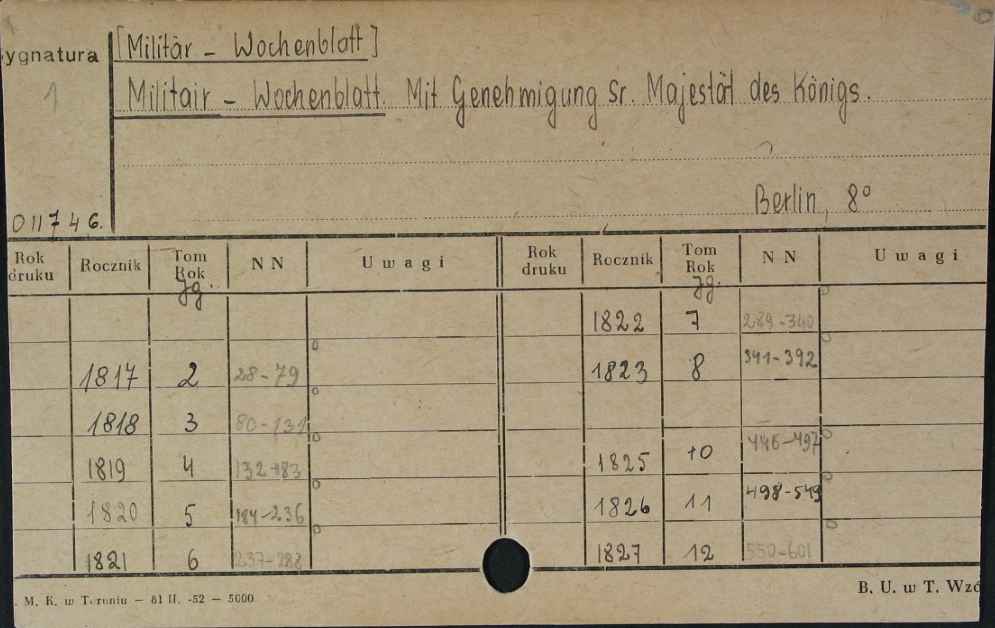 [Militär - Wochenblatt]
ygnatura
1
Militair - Wochenblatt. Mit Genehmigung Sr. Majestät des Königs.
Berlin, 8°
011746.
Rok druku Rocznik Tom Rok NN Uwagi Rok druku Rocznik Tom Rok NN Uwagi
Jg. Jg.
1822 7 289-340
1817 2 28-79 1823 8 341-392
1818 3 80-131
1819 4 132-183 1825 10 446-497
1820 5 184-236 1826 11 498-549
1821 6 237-288 1827 12 550-601
M. K. w Toruniu — 61 II. -52 — 5000 B. U. w T. Wzó